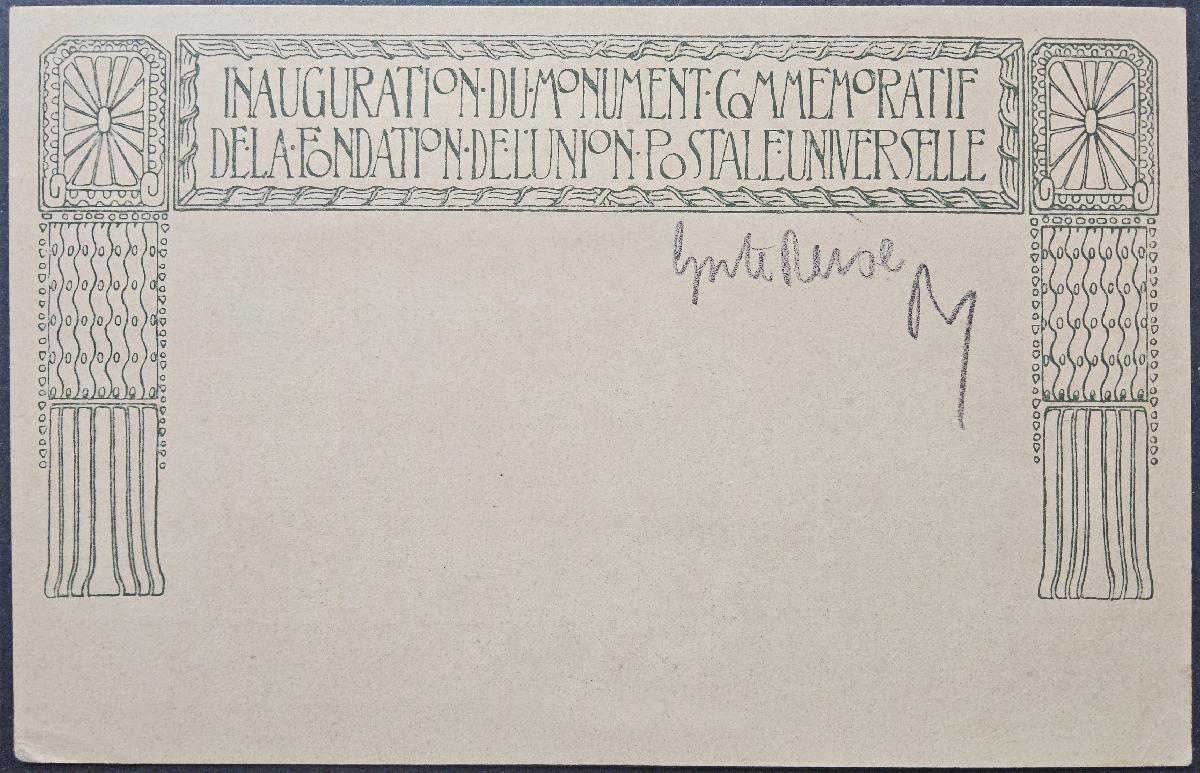 INAUGURATION·DU·MONUMENT·COMMEMORATIF
DE·LA·FONDATION·DE·L'UNION·POSTALE·UNIVERSELLE
Gute Reise